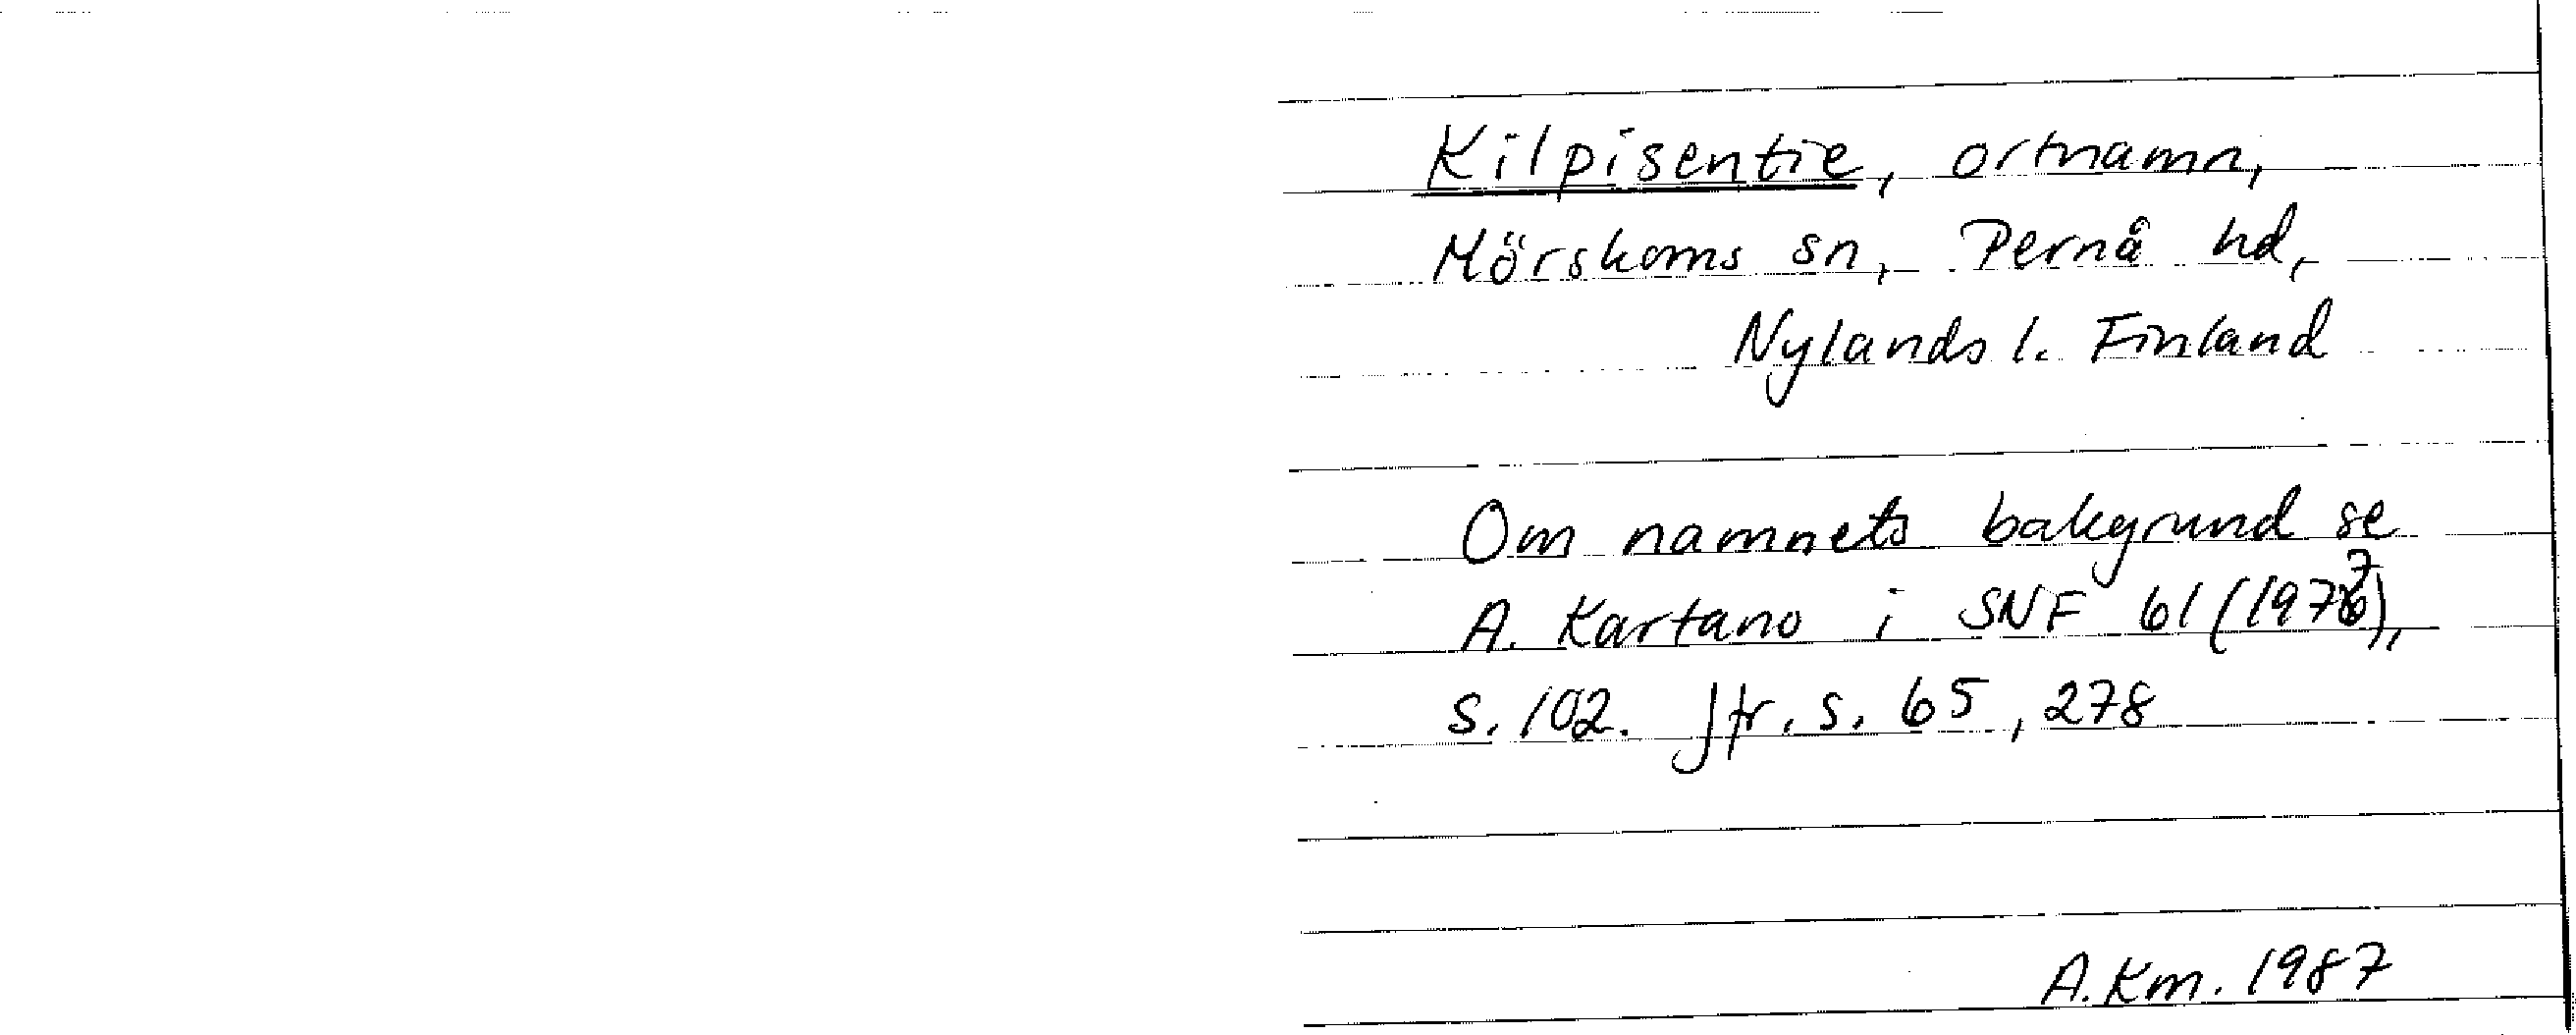 Kilpisentie, ortnamn,
Mörskoms sn, Pernå hd,
Nylands l. Finland
Om namnets bakgrund se
A. Kartano i SNF 61 (1977),
s. 102. Jfr. s. 65, 278
A. Km. 1987